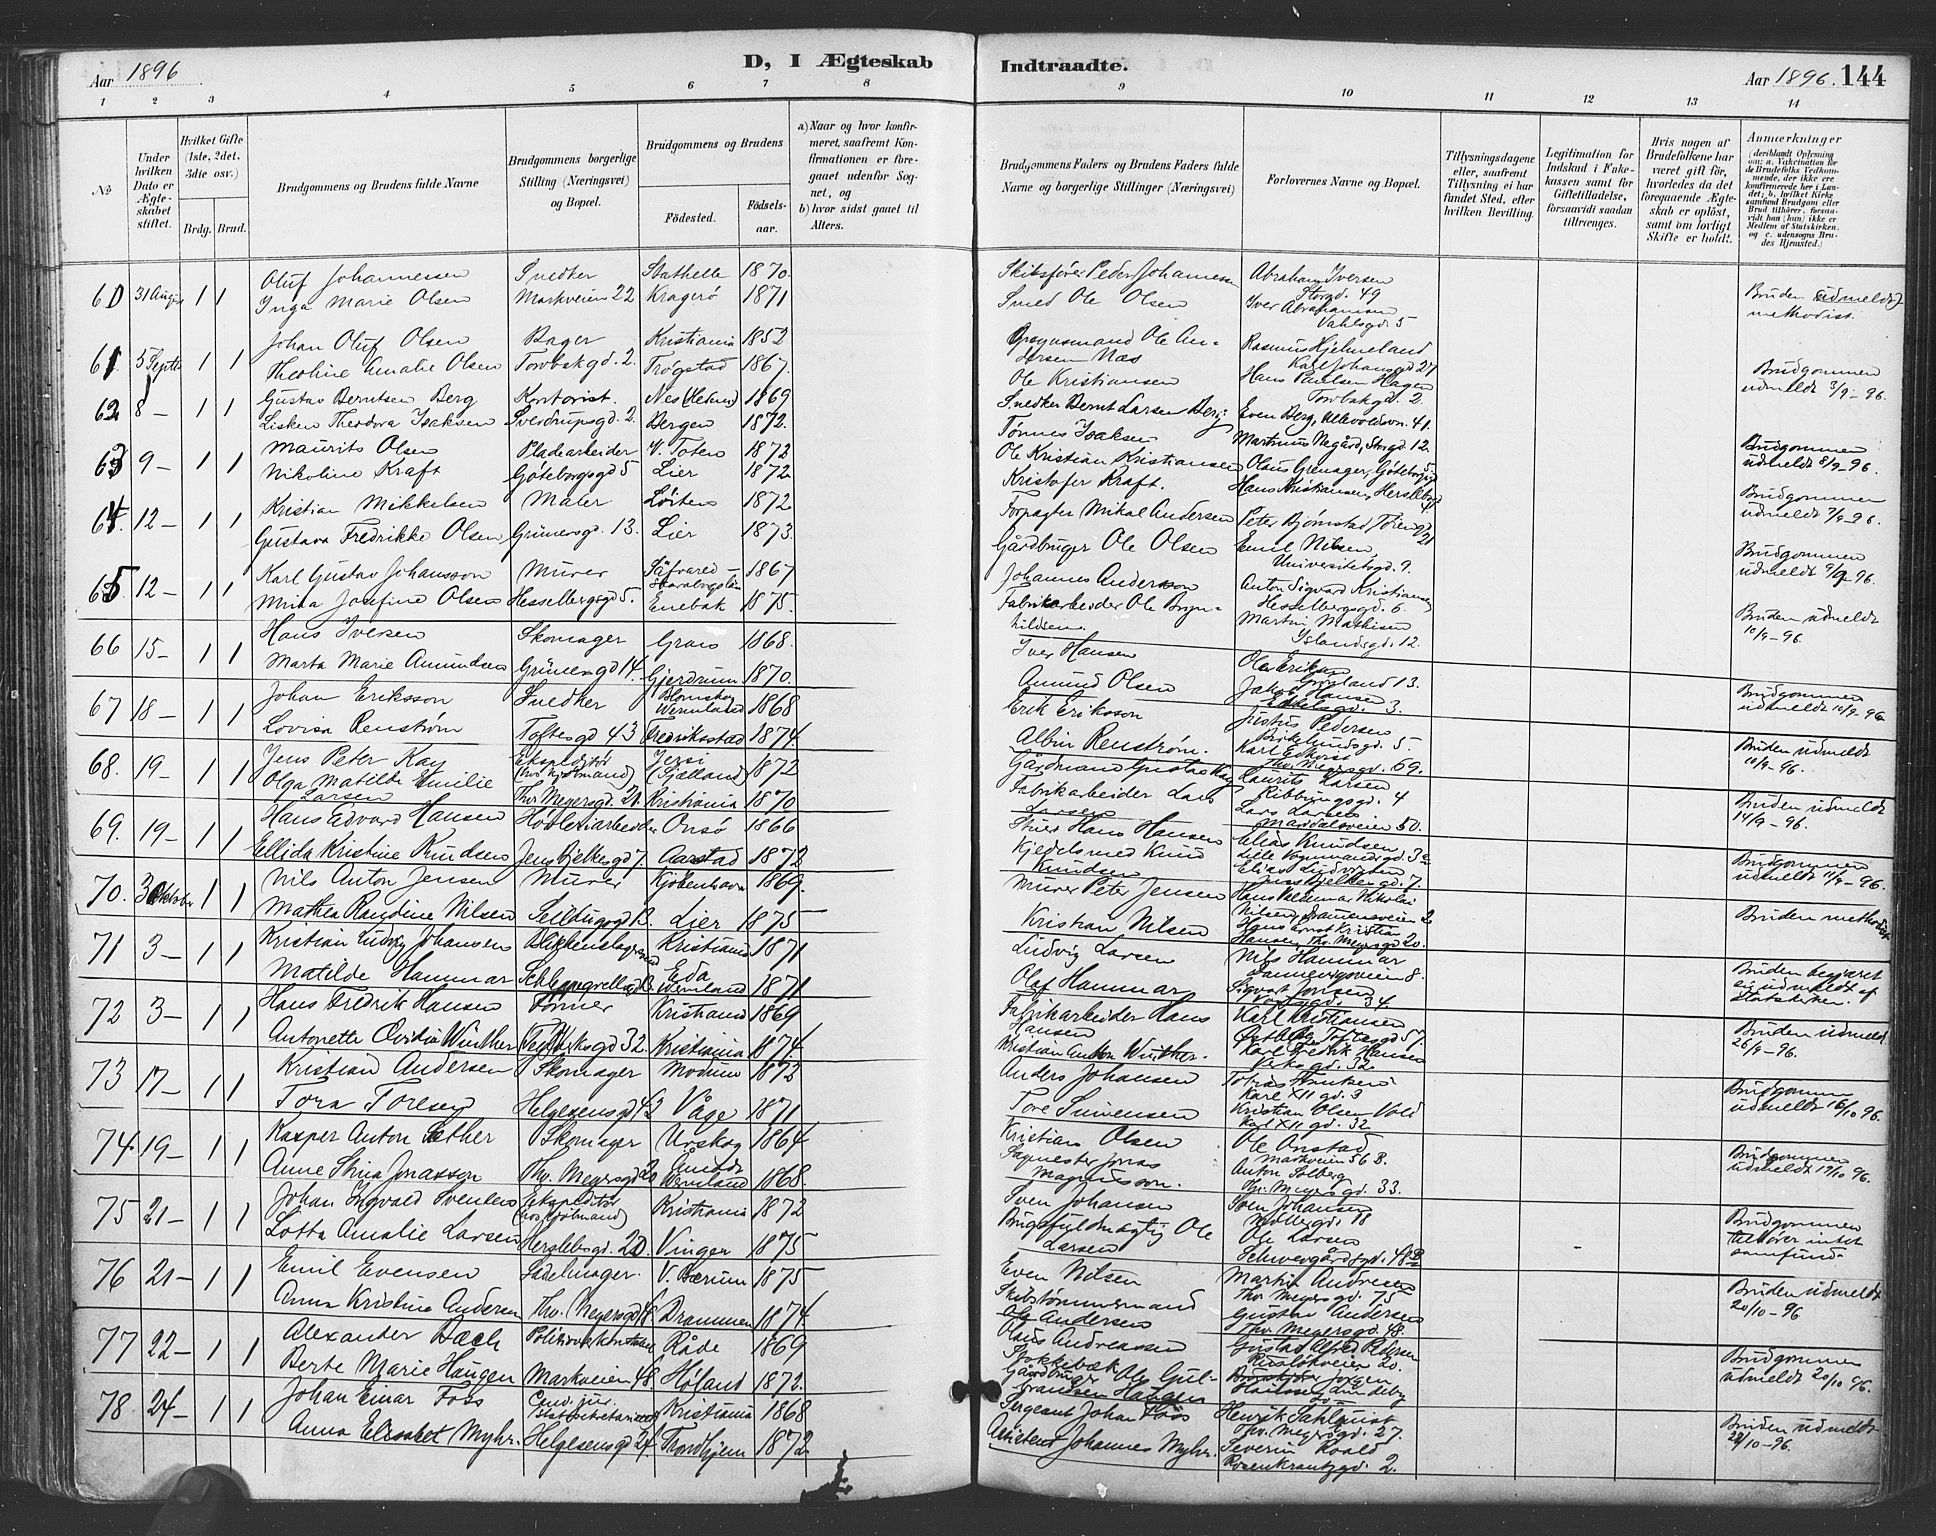 Aar 1896
D, I Ægteskab Indtraadte.
Aar 1896. 144
1 2 3 4 5 6 7 8 9 10 11 12 13 14
No
Under hvilken Dato er Ægteskabet stiftet.
Hvilket Gifte (1ste, 2det, 3die osv.)
Brdg. Brud.
Brudgommens og Brudens fulde Navne
Brudgommens borgerlige Stilling (Næringsvei) og Bopæl.
Brudgommens og Brudens
Fødested.
Fødselsaar.
a) Naar og hvor konfirmeret, saafremt Konfirmationen er foregaaet udenfor Sognet, og
b) hvor sidst gaaet til Alters.
Brudgommens Faders og Brudens Faders fulde Navne og borgerlige Stillinger (Næringsvei)
Forlovernes Navne og Bopæl.
Tillysningsdagene eller, saafremt Tillysning ei har fundet Sted, efter hvilken Bevilling.
Legitimation for Indskud i Enkekassen samt for Giftetilladelse, forsaavidt saadan tiltrænges.
Hvis nogen af Brudefolkene har været gift før, hvorledes da det foregaaende Ægteskab er opløst, samt om lovligt Skifte er holdt.
Anmærkninger
60 31 August 1 1 Oluf Johannessen Snedker Stathelle 1870. Skibsfører Peder Johannessen Abraham Iversen
Inga Marie Olsen Markveien 22 Kragerø 1871 Smed Ole Olsen Storgd. 49
Iver Abrahamsen Vahlsgd. 5
Bruden udmeldt methodist.
61. 5 Septb 1 1 Johan Oluf Olsen Bager Kristiania 1852 Ole Andersen Næs Rasmus Hjelmeland
Karl Johansgd 27
Theoline Amalie Olsen Torvbakgd. 2. Trøgstad 1867. Ole Kristiansen Hans Paulsen Hagen
Torvbakgd. 2.
Brudgommen udmeldt 3/9-96.
62 8- 1 1 Gustav Berntsen Berg Kontorist. Nes (Hedm) 1869 Snedker Bernt Larsen Berg Even Berg, Ullevoldsvn. 41.
Lisken Theodora Isaksen Sverdrupsgd. 2. Bergen 1872. Tønnes Isaksen Martinus Negård, Storgd 12.
63 9- 1 1 Maurits Olsen Pladearbeider V. Toten 1872 Ole Kristian Kristiansen Olaus Grenager, Göteborgsgd 5
Nikoline Kraft Göteborgsgd 5 Lier 1872 Kristofer Kraft. Hans Kristiansen, Herslebsgd
Brudgommen udmeldt 8/9-96.
64. 12- 1 1 Kristian Mikkelsen Maler Løiten 1872 Forpagter Mikal Andersen Peter Bjørnstad,
Gustava Fredrikke Olsen Grünersgd. 13. Lier 1873. Gårdbruger Ole Olsen Emil Nilsen,
Universitetsgd. 9.
Brudgommen udmeldt 7/9-96.
65 12- 1 1 Karl Gustav Johansson Murer Säfvared - Skaraborgs län 1867 Johannes Andersson Anton Sigvard Kristiansen
Hesselbergsgd. 6.
Mina Josefine Olsen Hesselbergsgd 5. Enebak 1875. Fabrikarbeider Ole Brynhildsen. Martin Mathisen
Islandsgd. 12.
Brudgommen udmeldt 9/9-96.
66 15- 1 1 Hans Iversen Skomager Gran 1868. Iver Hansen Ole Eriksen
Grønland 13.
Marta Marie Amundsen Grünersgd 14. Gjerdrum 1870. Amund Olsen Jakob Hansen
3.
Bruden udmeldt 10/9-96.
67 18- 1 1 Johan Eriksson Snedker Blomskog Wermland 1868 Erik Eriksson Justus Pedersen
Birkelundsgd. 5.
Lovisa Renström Toftesgd 43 Fredriksstad 1874 Albin Renström. Karl
Thv. Meyersgd. 69.
Brudgommen udmeldt 10/9-96.
68. 19- 1 1 Jens Peter Kay Ekspeditør Jersi (Sjælland) 1872 Gårdmand Gustav Kay Laurits Larsen
Ribbungsgd. 4
Olga Matilde Emilie Larsen Thv. Meyersgd. 21. Kristiania 1870 Fabrikarbeider Lars Larsen Lars Larsen
Mardalsveien 50.
Bruden udmeldt 10/9-96.
69. 19- 1 1 Hans Edvard Hansen Høvleriarbeider Onsø 1866 Stuer Hans Hansen Elias Knudsen
Ellida Kristine Knudsen Jens Bjelkesgd 7. Aarstad 1872 Kjedelsmed Knud Knudsen Elias Ludvigsen
Jens Bjelkesgd. 7.
Bruden udmeldt 14/9-96.
70. 3 Oktober 1 1 Nils Anton Jensen Murer Kjøbenhavn 1869. Murer Peter Jensen Hans Valdemar Nikolai
Nilsen,
Mathea Randine Nilsen Seildugsgd B. Lier 1875 Kristian Nilsen Hans Ernst Kristian
Hansen, Thv. Meyersgd 20.
Brudgommen udmeldt 11/9-96.
71 3- 1 1 Kristian Ludvig Johansen Blikkenslagersvend Kristiania 1871 Ludvig Larsen Nils Hammar
Dannevigsveien 8.
Matilde Hammar Schleppegrellsgd Eda Wermland 1871 Olaf Hammar Sigvart Jonsen
34.
Bruden methodist
72 3- 1 1 Hans Fredrik Hansen Former Kristiania 1869 Fabrikarbeider Hans Hansen Karl Kristiansen
Østberg Toftesgd 57.
Antonette Ovidia Winther Verksgd 32. Kristiania 1874. Kristian Anton Winther. Karl Fredrik Hansen
Verksgd. 32
Bruden begjæret sig udmeldt af Statskirken.
73 17- 1 1 Kristian Andersen Skomager Modum 1872 Anders Johansen Tobias
Karl XII gd. 3
Tora Toresen Helgesensgd 43 Våge 1871 Tore Simensen Kristian Olsen Vold
Karl XII gd. 32
Bruden udmeldt 26/9-96.
74 19- 1 1 Kasper Anton Sæther Skomager Urskog 1864 Kristian Olsen Ole Onstad
Markveien 56 B.
Anne Stina Jonasson Thv. Meyersgd 20 Wermland 1868. Sagmester Jonas Magnusson. Anton Solberg
Thv. Meyersgd. 33.
Brudgommen udmeldt 16/10 96.
75 21- 1 1 Johan Ingvald Svendsen Ekspeditør Kristiania 1872 Sven Johansen Sven Johansen
Møllergd. 18
Lotta Amalie Larsen Herslebsgd. 20. Vinger 1875 Brugsfuldmægtig Ole Larsen Ole Larsen
Schweigårdsgd. 48B
Brudgommen udmeldt 19/10 96.
76 21- 1 1 Emil Evensen Sadelmager. V. Bærum 1875 Even Nilsen Martin Andresen
Thv Meyersgd. 75
Anna Kristine Andersen Thv. Meyersgd 48. Drammen 1874. Skibstømmermand Ole Andersen Gustav Andersen
Thv. Meyersgd. 48.
Brudgommen tilhører intet samfund.
77 22- 1 1 Alexander Bach Politikonstabel Råde 1869 Olaus Andreassen Gustav Alfred Pedersen
Rusløkveien 20.
Berte Marie Haugen Markveien 48. Høland 1872. Gårdbruger Ole Gulbrandsen Haugen Jørgen
Bruden udmeldt 20/10-96.
78 24- 1 1 Johan Einar Foss Cand. jur. Kristiania 1868 Sergeant Johan Foss Henrik Sahlquist
Thv. Meyersgd. 27.
Anna Elisabet Myhr. Helgesensgd 24. Trondhjem 1872 Johannes Myhr. Severin Roald
Rosenkrantzgd. 2.
Brudgommen udmeldt 20/10 96.
Bruden udmeldt 22/10-96.